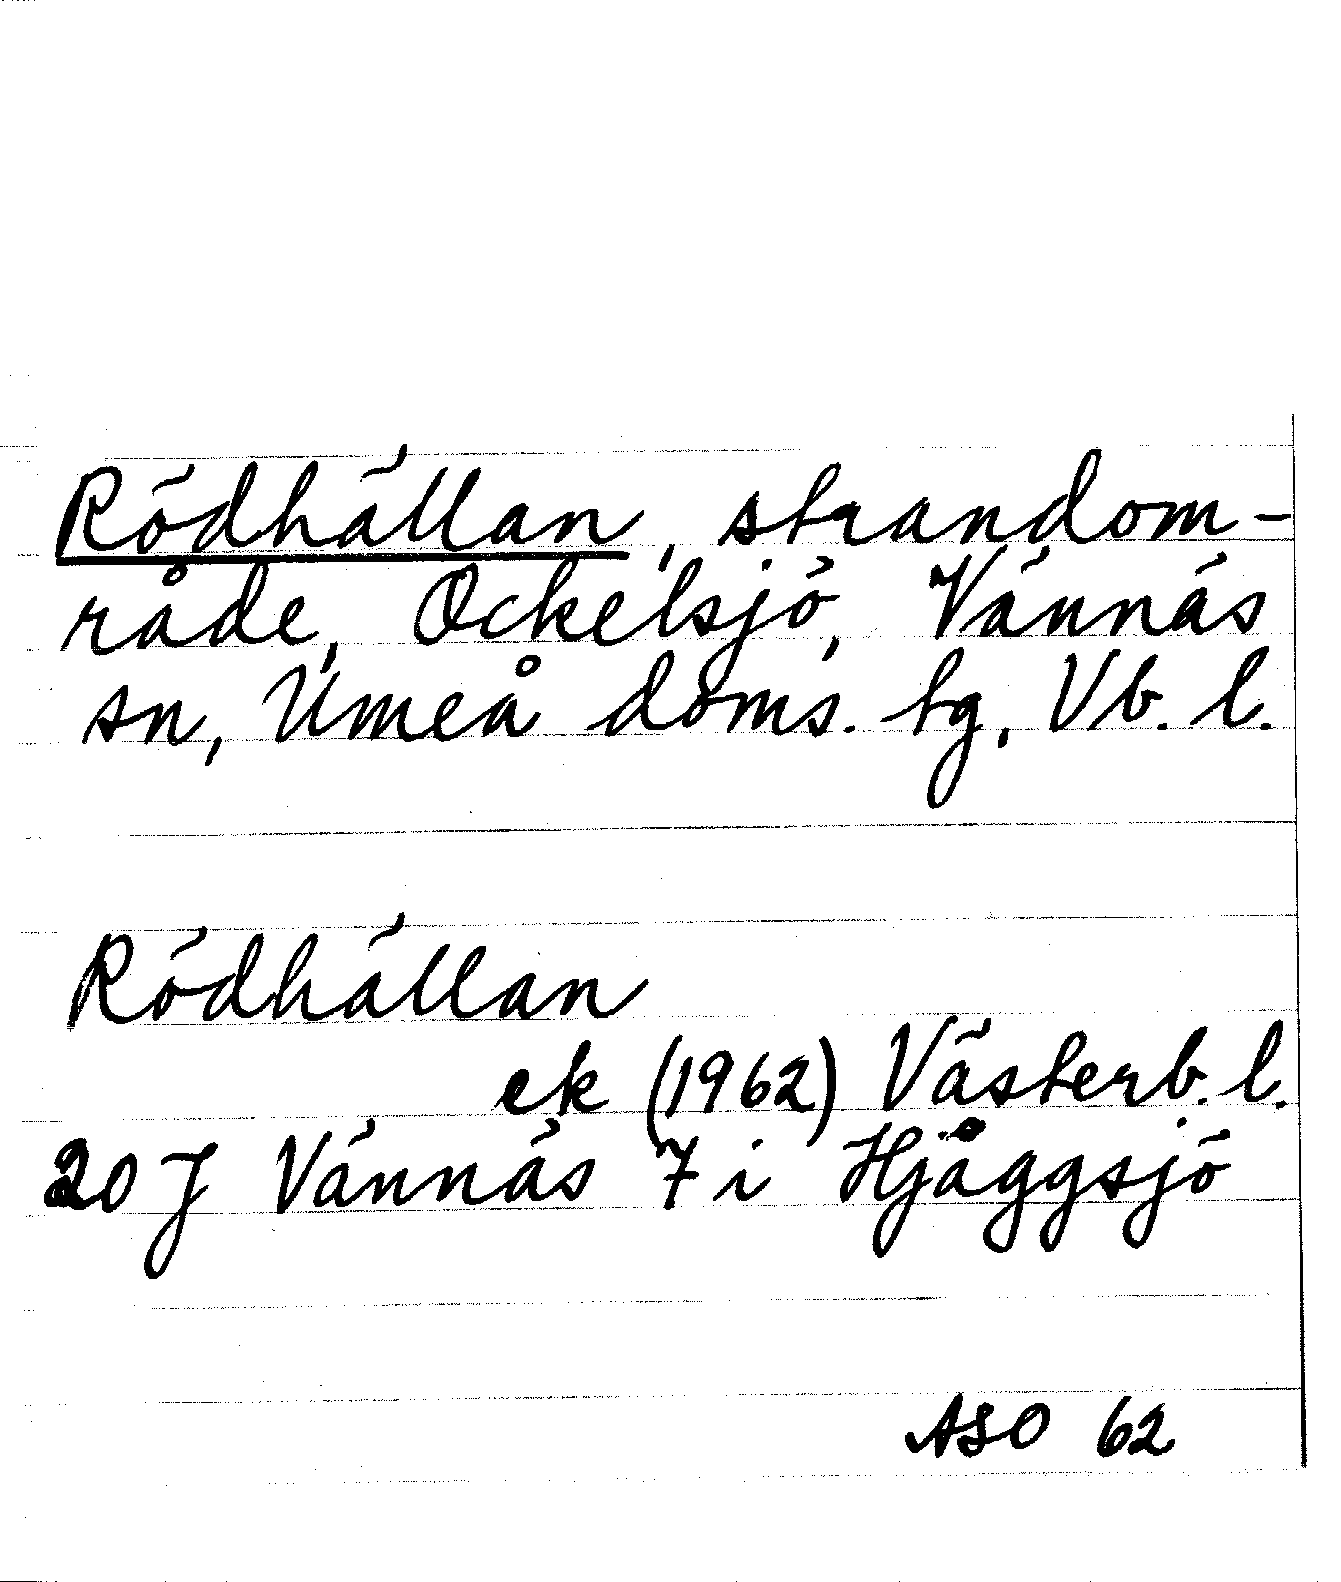 Rödhällan, strandom-
råde, Ockelsjö, Vännäs
sn, Umeå doms. tg, Vb. l.
Rödhällan
ek (1962) Västerb. l.
20 J Vännäs 7 i Hjåggsjö
ASO 62